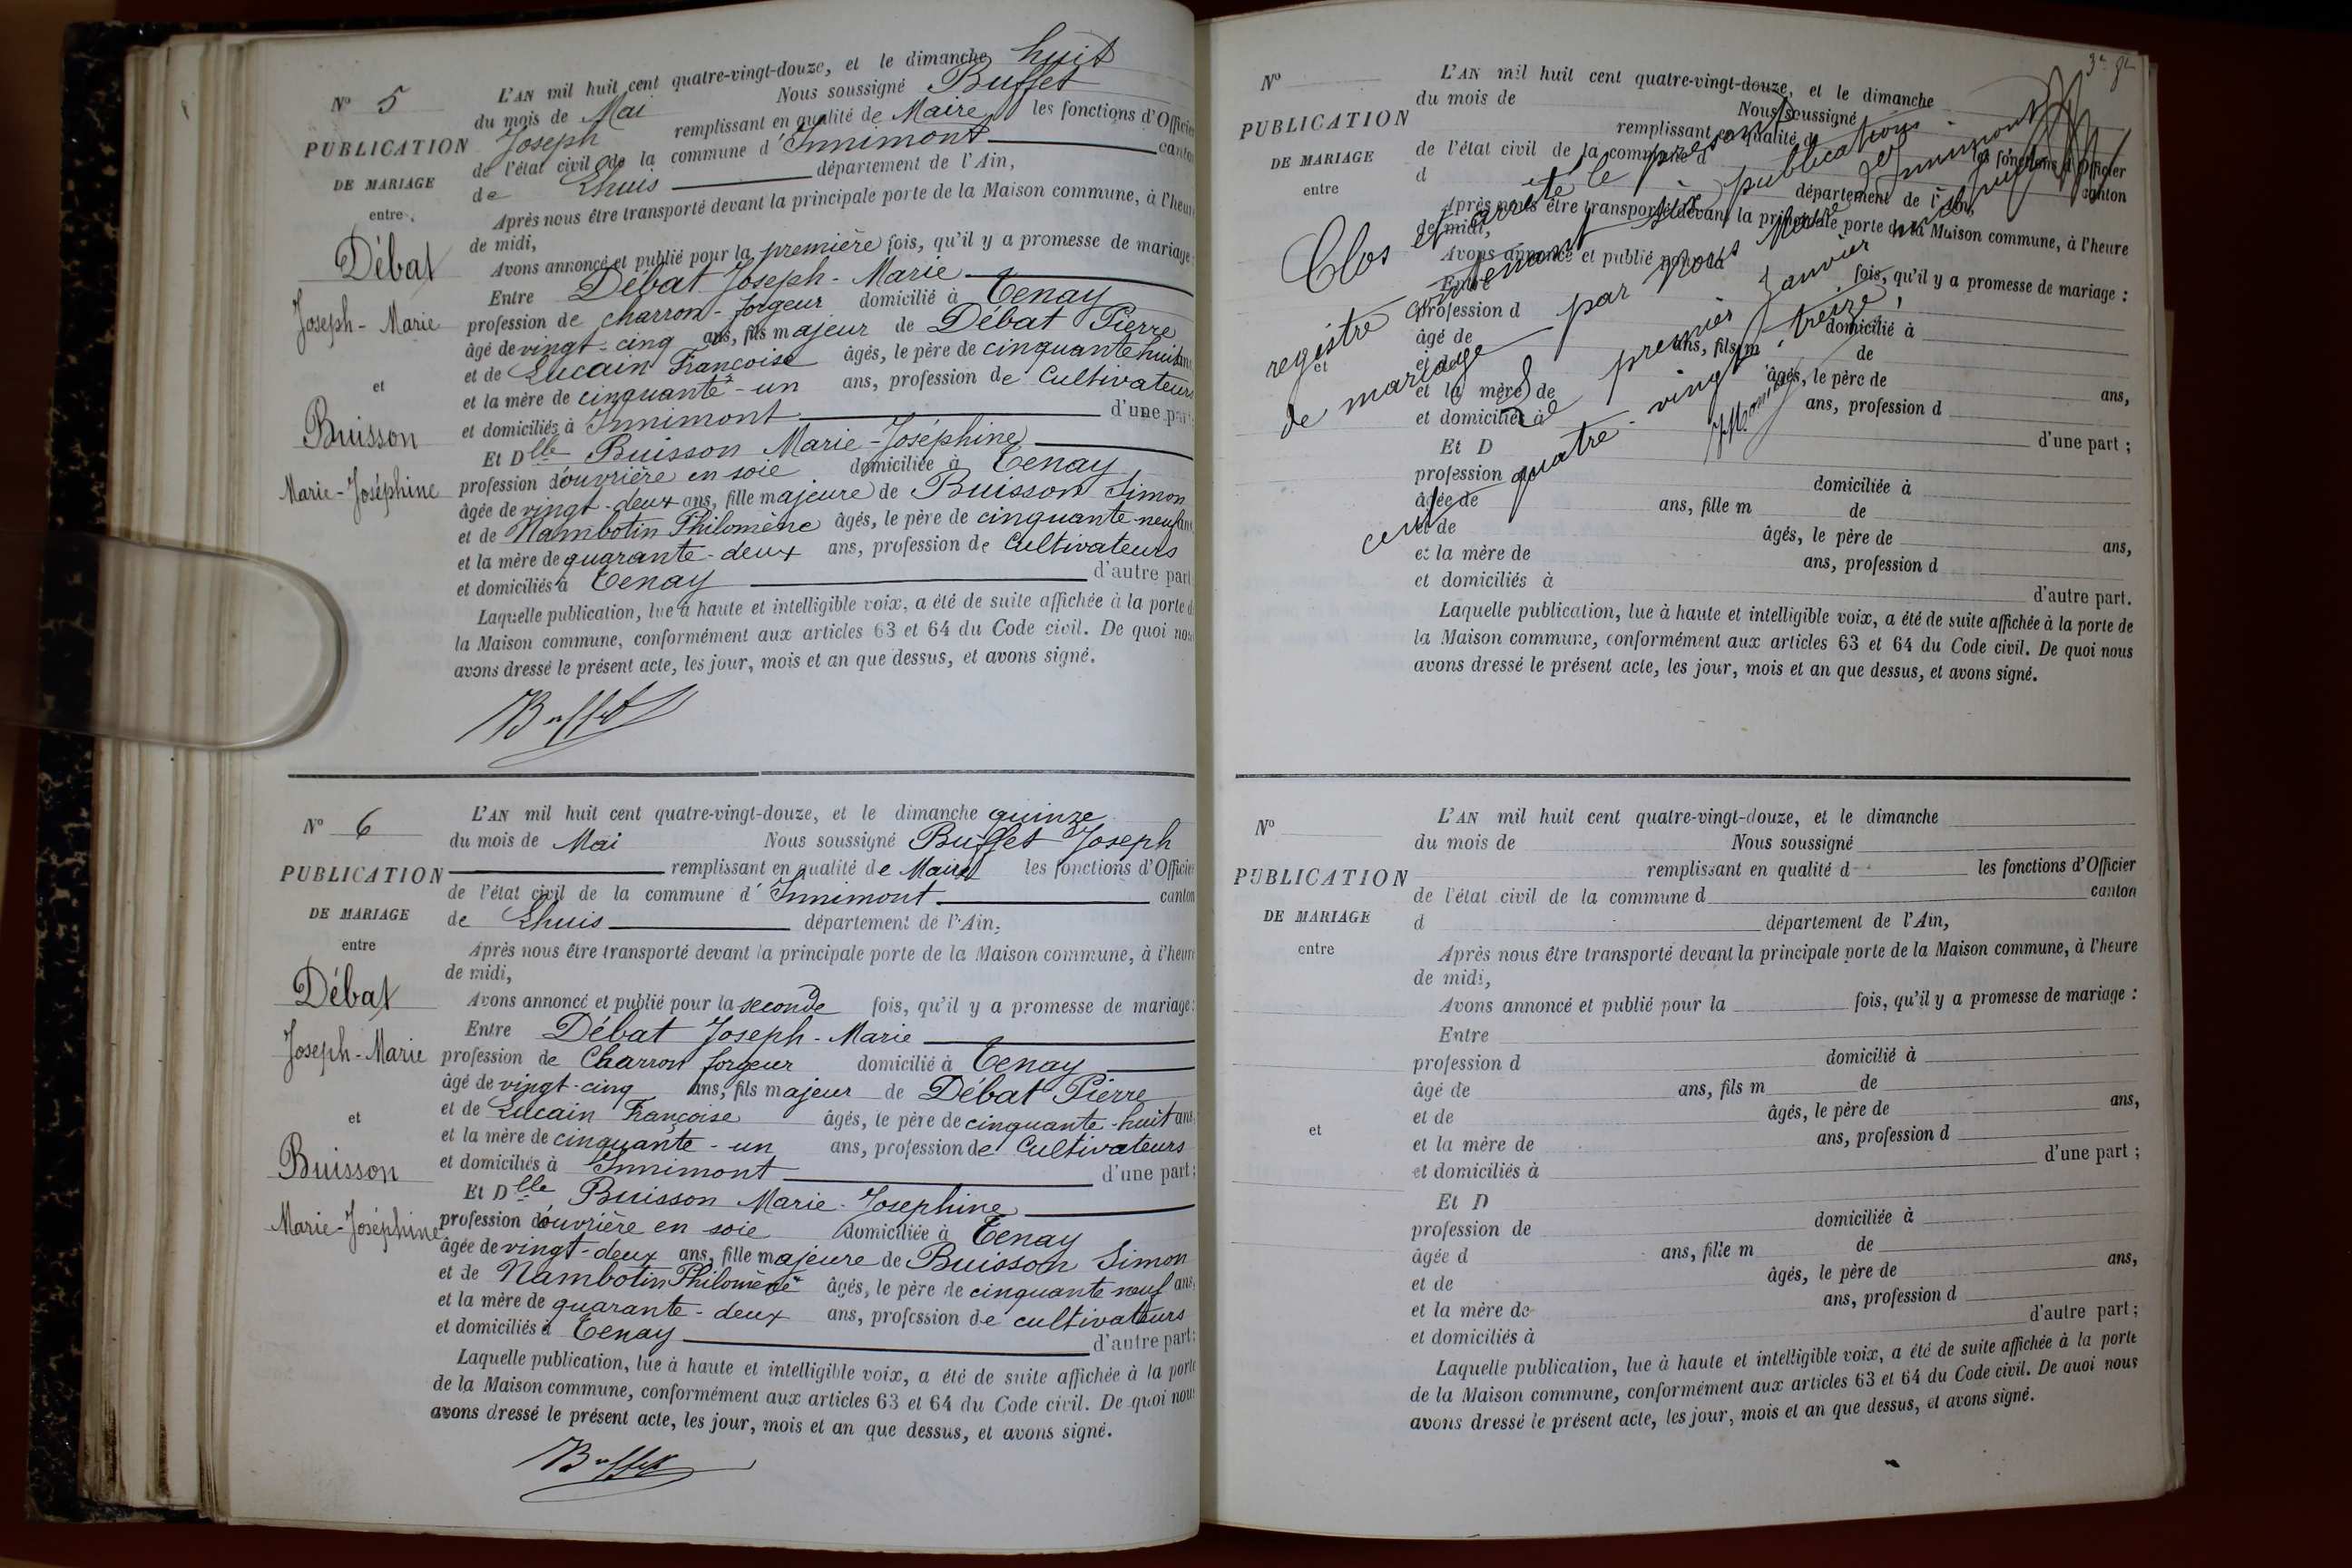 N° 5
PUBLICATION
DE MARIAGE
entre
Débat
Joseph - Marie
et
Buisson
Marie - Joséphine
L'AN mil huit cent quatre-vingt-douze, et le dimanche huit
du mois de Mai Nous soussigné Buffet
Joseph remplissant en qualité de Maire les fonctions d'Officier
de l'état civil de la commune d'Innimont canton
de Lhuis département de l'Ain,
Après nous être transporté devant la principale porte de la Maison commune, à l'heure
de midi,
Avons annoncé et publié pour la première fois, qu'il y a promesse de mariage:
Entre Débat Joseph - Marie
profession de charron - forgeur domicilié à Tenay
âgé de vingt-cinq ans, fils majeur de Débat Pierre
et de Lucain Françoise âgés, le père de cinquante huit ans,
et la mère de cinquante - un ans, profession de Cultivateurs
et domiciliés à Innimont d'une part;
Et Dlle Buisson Marie - Joséphine
profession d'ouvrière en soie domiciliée à Tenay
âgée de vingt-deux ans, fille majeure de Buisson Simon
et de Nambotin Philomène âgés, le père de cinquante-neuf ans,
et la mère de quarante - deux ans, profession de Cultivateurs
et domiciliés à Tenay d'autre part
Laquelle publication, lue à haute et intelligible voix, a été de suite affichée à la porte de
la Maison commune, conformément aux articles 63 et 64 du Code civil. De quoi nous
avons dressé le présent acte, les jour, mois et an que dessus, et avons signé.
Buffet
N° 6
PUBLICATION
DE MARIAGE
entre
Débat
Joseph - Marie
et
Buisson
Marie - Joséphine
L'AN mil huit cent quatre-vingt-douze, et le dimanche quinze
du mois de Mai Nous soussigné Buffet Joseph
remplissant en qualité de Maire les fonctions d'Officier
de l'état civil de la commune d'Innimont canton
de Lhuis département de l'Ain,
Après nous être transporté devant la principale porte de la Maison commune, à l'heure
de midi,
Avons annoncé et publié pour la seconde fois, qu'il y a promesse de mariage:
Entre Débat Joseph - Marie
profession de Charron forgeur domicilié à Tenay
âgé de vingt-cinq ans, fils majeur de Débat Pierre
et de Lucain Françoise âgés, le père de cinquante-huit ans,
et la mère de cinquante - un ans, profession de Cultivateurs
et domiciliés à Innimont d'une part;
Et Dlle Buisson Marie - Josephine
profession d'ouvrière en soie domiciliée à Tenay
âgée de vingt-deux ans, fille majeure de Buisson Simon
et de Nambotin Philomène âgés, le père de cinquante neuf ans,
et la mère de quarante - deux ans, profession de cultivateurs
et domiciliés à Tenay d'autre part;
Laquelle publication, lue à haute et intelligible voix, a été de suite affichée à la porte
de la Maison commune, conformément aux articles 63 et 64 du Code civil. De quoi nous
avons dressé le présent acte, les jour, mois et an que dessus, et avons signé.
Buffet
N°
PUBLICATION
DE MARIAGE
entre
et
L'AN mil huit cent quatre-vingt-douze, et le dimanche
du mois de Nous soussigné
remplissant en qualité d les fonctions d'Officier
de l'état civil de la commune d canton
d département de l'Ain,
Après nous être transporté devant la principale porte de la Maison commune, à l'heure
de midi,
Avons annoncé et publié pour la fois, qu'il y a promesse de mariage :
Entre
profession d domicilié à
âgé de ans, fils m de
et de âgés, le père de ans,
et la mère de ans, profession d
et domiciliés à d'une part ;
Et D
profession de domiciliée à
âgée de ans, fille m de
et de âgés, le père de ans,
et la mère de ans, profession d
et domiciliés à d'autre part.
Laquelle publication, lue à haute et intelligible voix, a été de suite affichée à la porte de
la Maison commune, conformément aux articles 63 et 64 du Code civil. De quoi nous
avons dressé le présent acte, les jour, mois et an que dessus, et avons signé.
Clos et arrêté le présent
registre contenant six publications
de mariage par nous Maire d'Innimont
le premier Janvier mil huit
cent quatre-vingt-treize,
N°
PUBLICATION
DE MARIAGE
entre
et
L'AN mil huit cent quatre-vingt-douze, et le dimanche
du mois de Nous soussigné
remplissant en qualité d les fonctions d'Officier
de l'état civil de la commune d canton
d département de l'Ain,
Après nous être transporté devant la principale porte de la Maison commune, à l'heure
de midi,
Avons annoncé et publié pour la fois, qu'il y a promesse de mariage :
Entre
profession d domicilié à
âgé de ans, fils m de
et de âgés, le père de ans,
et la mère de ans, profession d
et domiciliés à d'une part ;
Et D
profession de domiciliée à
âgée d ans, fille m de
et de âgés, le père de ans,
et la mère de ans, profession d
et domiciliés à d'autre part ;
Laquelle publication, lue à haute et intelligible voix, a été de suite affichée à la porte
de la Maison commune, conformément aux articles 63 et 64 du Code civil. De quoi nous
avons dressé le présent acte, les jour, mois et an que dessus, et avons signé.